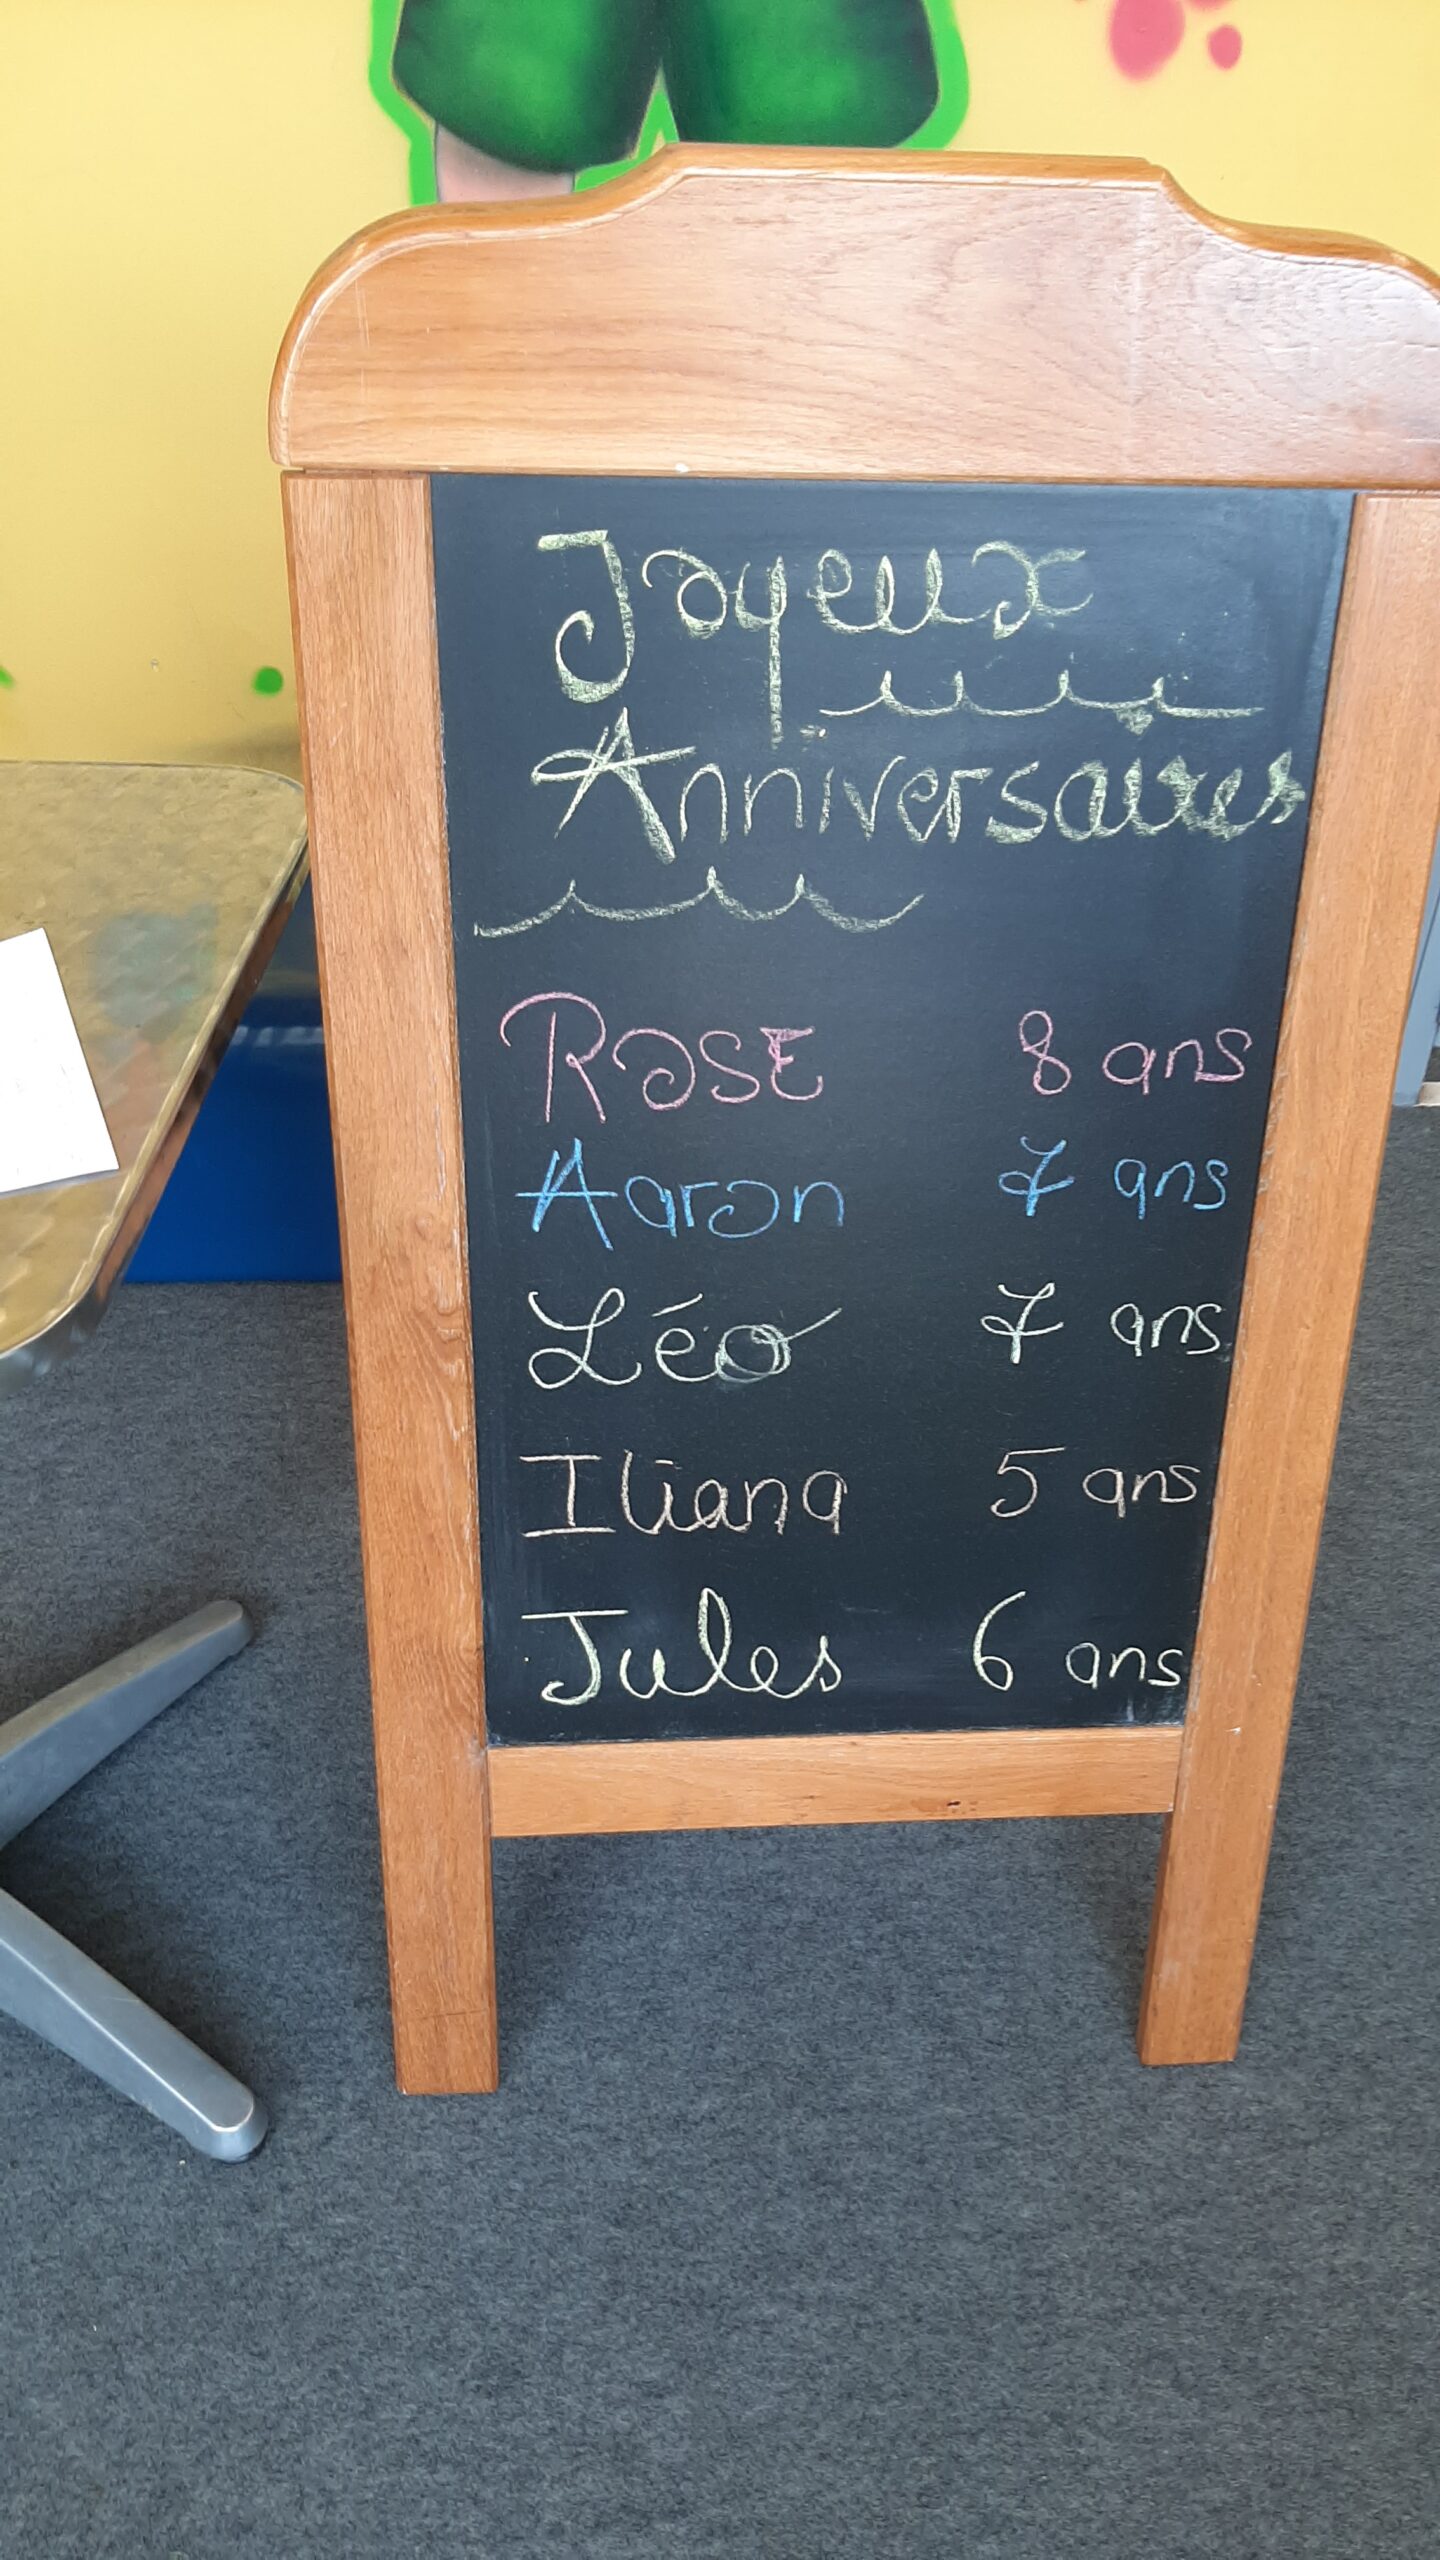 Joyeux
Anniversaires
ROSE 8 ans
Aaron 7 ans
Léo 7 ans
Iliana 5 ans
Jules 6 ans